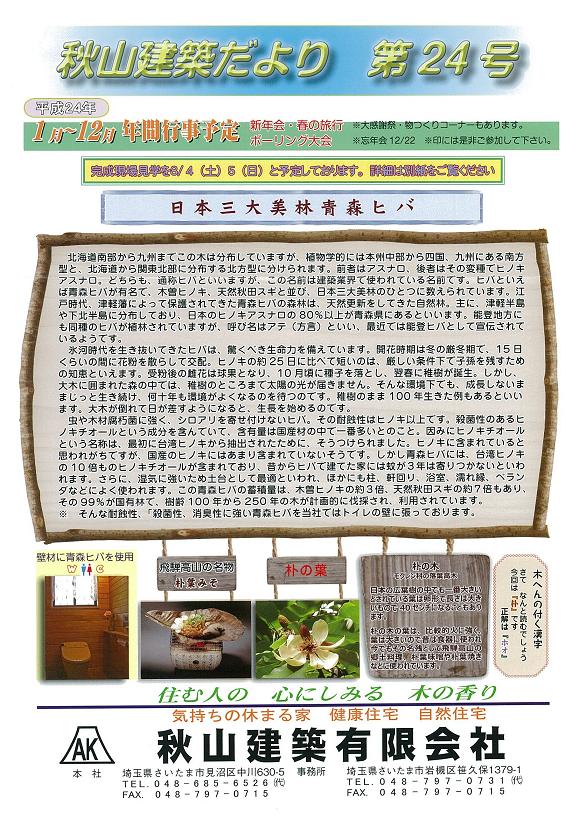 秋山建築だより 第24号
平成24年
1月〜12月 年間行事予定
新年会・春の旅行
ボーリング大会
※大感謝祭・物つくりコーナーもあります。
※忘年会 12/22 ※印には是非ご参加して下さい。
完成現場見学を6/4（土）5（日）と予定しております。詳細は別紙をご覧ください
日本三大美林青森ヒバ
北海道南部から九州までこの木は分布していますが、植物学的には本州中部から四国、九州にある南方
型と、北海道から関東北部に分布する北方型に分けられます。前者はアスナロ、後者はその変種でヒノキ
アスナロ。どちらも、通称ヒバといいますが、この名前は建築業界で使われている名前です。ヒバといえ
ば青森ヒバが有名で、木曽ヒノキ、天然秋田スギと並び、日本三大美林のひとつに数えられています。江
戸時代、津軽藩によって保護されてきた青森ヒバの森林は、天然更新をしてきた自然林。主に、津軽半島
や下北半島に分布しており、日本のヒノキアスナロの80%以上が青森県にあるといいます。能登地方に
も同種のヒバが植林されていますが、呼び名はアテ（方言）といい、最近では能登ヒバとして宣伝されて
いるようです。
氷河時代を生き抜いてきたヒバは、驚くべき生命力を備えています。開花時期は冬の厳冬期で、15日
くらいの間に花粉を散らして交配。ヒノキの約25日に比べて短いのは、厳しい条件下で子孫を残すため
の知恵といえます。受粉後の雌花は球果となり、10月頃に種子を落とし、翌春に稚樹が誕生。しかし、
大木に囲まれた森の中では、稚樹のところまで太陽の光が届きません。そんな環境下でも、成長しないま
まじっと生き続け、何十年も環境がよくなるのを待つのです。稚樹のまま100年生きた例もあるといい
ます。大木が倒れて日が差すようになると、生長を始めるのです。
虫や木材腐朽菌に強く、シロアリを寄せ付けないヒバ。その耐蝕性はヒノキ以上です。殺菌性のあるヒ
ノキチオールという成分を含んでいて、含有量は国産材の中で一番多いとのこと。因みにヒノキチオール
という名称は、最初に台湾ヒノキから抽出されたために、そうつけられました。ヒノキに含まれていると
思われがちですが、国産のヒノキにはあまり含まれていないそうです。しかし青森ヒバには、台湾ヒノキ
の10倍ものヒノキチオールが含まれており、昔からヒバで建てた家には蚊が3年は寄りつかないといわ
れます。さらに、湿気に強いため土台として最適といわれ、ほかにも柱、軒回り、浴室、濡れ縁、ベラン
ダなどによく使われます。この青森ヒバの蓄積量は、木曽ヒノキの約3倍、天然秋田スギの約7倍もあり、
その99%が国有林で、樹齢100年から250年の木が計画的に伐採され、利用されています。
※ そんな耐蝕性、「殺菌性、消臭性に強い青森ヒバを当社ではトイレの壁に張っております。
壁材に青森ヒバを使用
W C
飛騨高山の名物
朴葉みそ
朴の葉
朴の木
モクレン科の落葉高木
日本の広葉樹の中でも一番大きい
とされている葉は卵形で長さは大き
いものも40センチになることもあり
ます。
朴の木の葉は、比較的火に強く、
葉は大きいので昔は食器に使われ
今でもその名残として飛騨高山の
郷土料理、朴葉味噌や朴葉焼き
などに使われています。
木へんの付く漢字
さて なんと読むでしょう
今回は『朴』です
正解は『ホオ』
住む人の 心にしみる 木の香り
気持ちの休まる家 健康住宅 自然住宅
AK
秋山建築有限会社
本社 埼玉県さいたま市見沼区中川630-5
TEL. 048-685-6526（代）
FAX. 048-797-0715
事務所 埼玉県さいたま市岩槻区笹久保1379-1
TEL. 048-797-0731（代）
FAX. 048-797-0715